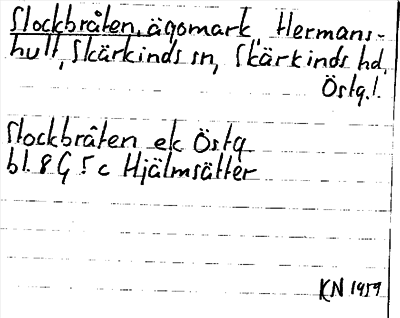 Stockbråten, ägomark, Hermans-
hult, Skärkinds sn, Skärkinds hd,
Östg.l.
Stockbråten ek Östg
bl. 8 G 5 c Hjälmsätter
KN 1959